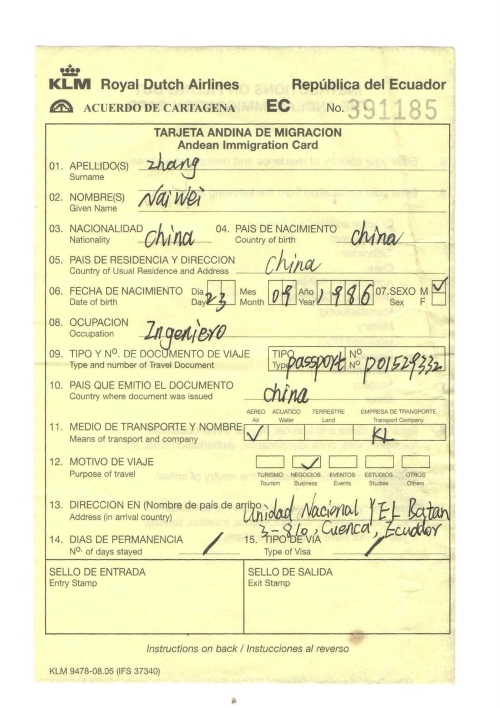 KLM Royal Dutch Airlines República del Ecuador
ACUERDO DE CARTAGENA EC No. 391185
TARJETA ANDINA DE MIGRACION
Andean Immigration Card
01. APELLIDO(S) zhang
Surname
02. NOMBRE(S) NaiWei
Given Name
03. NACIONALIDAD china 04. PAIS DE NACIMIENTO china
Nationality Country of birth
05. PAIS DE RESIDENCIA Y DIRECCION china
Country of Usual Residence and Address
06. FECHA DE NACIMIENTO Día 23 Mes 09 Año 1986 07.SEXO M
Date of birth Day Month Year Sex F
08. OCUPACION Ingeniero
Occupation
09. TIPO Y Nº. DE DOCUMENTO DE VIAJE TIPO passport Nº P01529332
Type and number of Travel Document Type Nº
10. PAIS QUE EMITIO EL DOCUMENTO china
Country where document was issued
AEREO ACUATICO TERRESTRE EMPRESA DE TRANSPORTE
Air Water Land Transport Company
11. MEDIO DE TRANSPORTE Y NOMBRE KL
Means of transport and company
12. MOTIVO DE VIAJE
Purpose of travel TURISMO NEGOCIOS EVENTOS ESTUDIOS OTROS
Tourism Business Events Studies Others
13. DIRECCION EN (Nombre de país de arribo Unidad Nacional Y EL Batan
Address (in arrival country) 3-810, Cuenca, Ecuador
14. DIAS DE PERMANENCIA / 15. TIPO DE VIA /
Nº. of days stayed Type of Visa
SELLO DE ENTRADA SELLO DE SALIDA
Entry Stamp Exit Stamp
Instructions on back / Instucciones al reverso
KLM 9478-08.05 (IFS 37340)